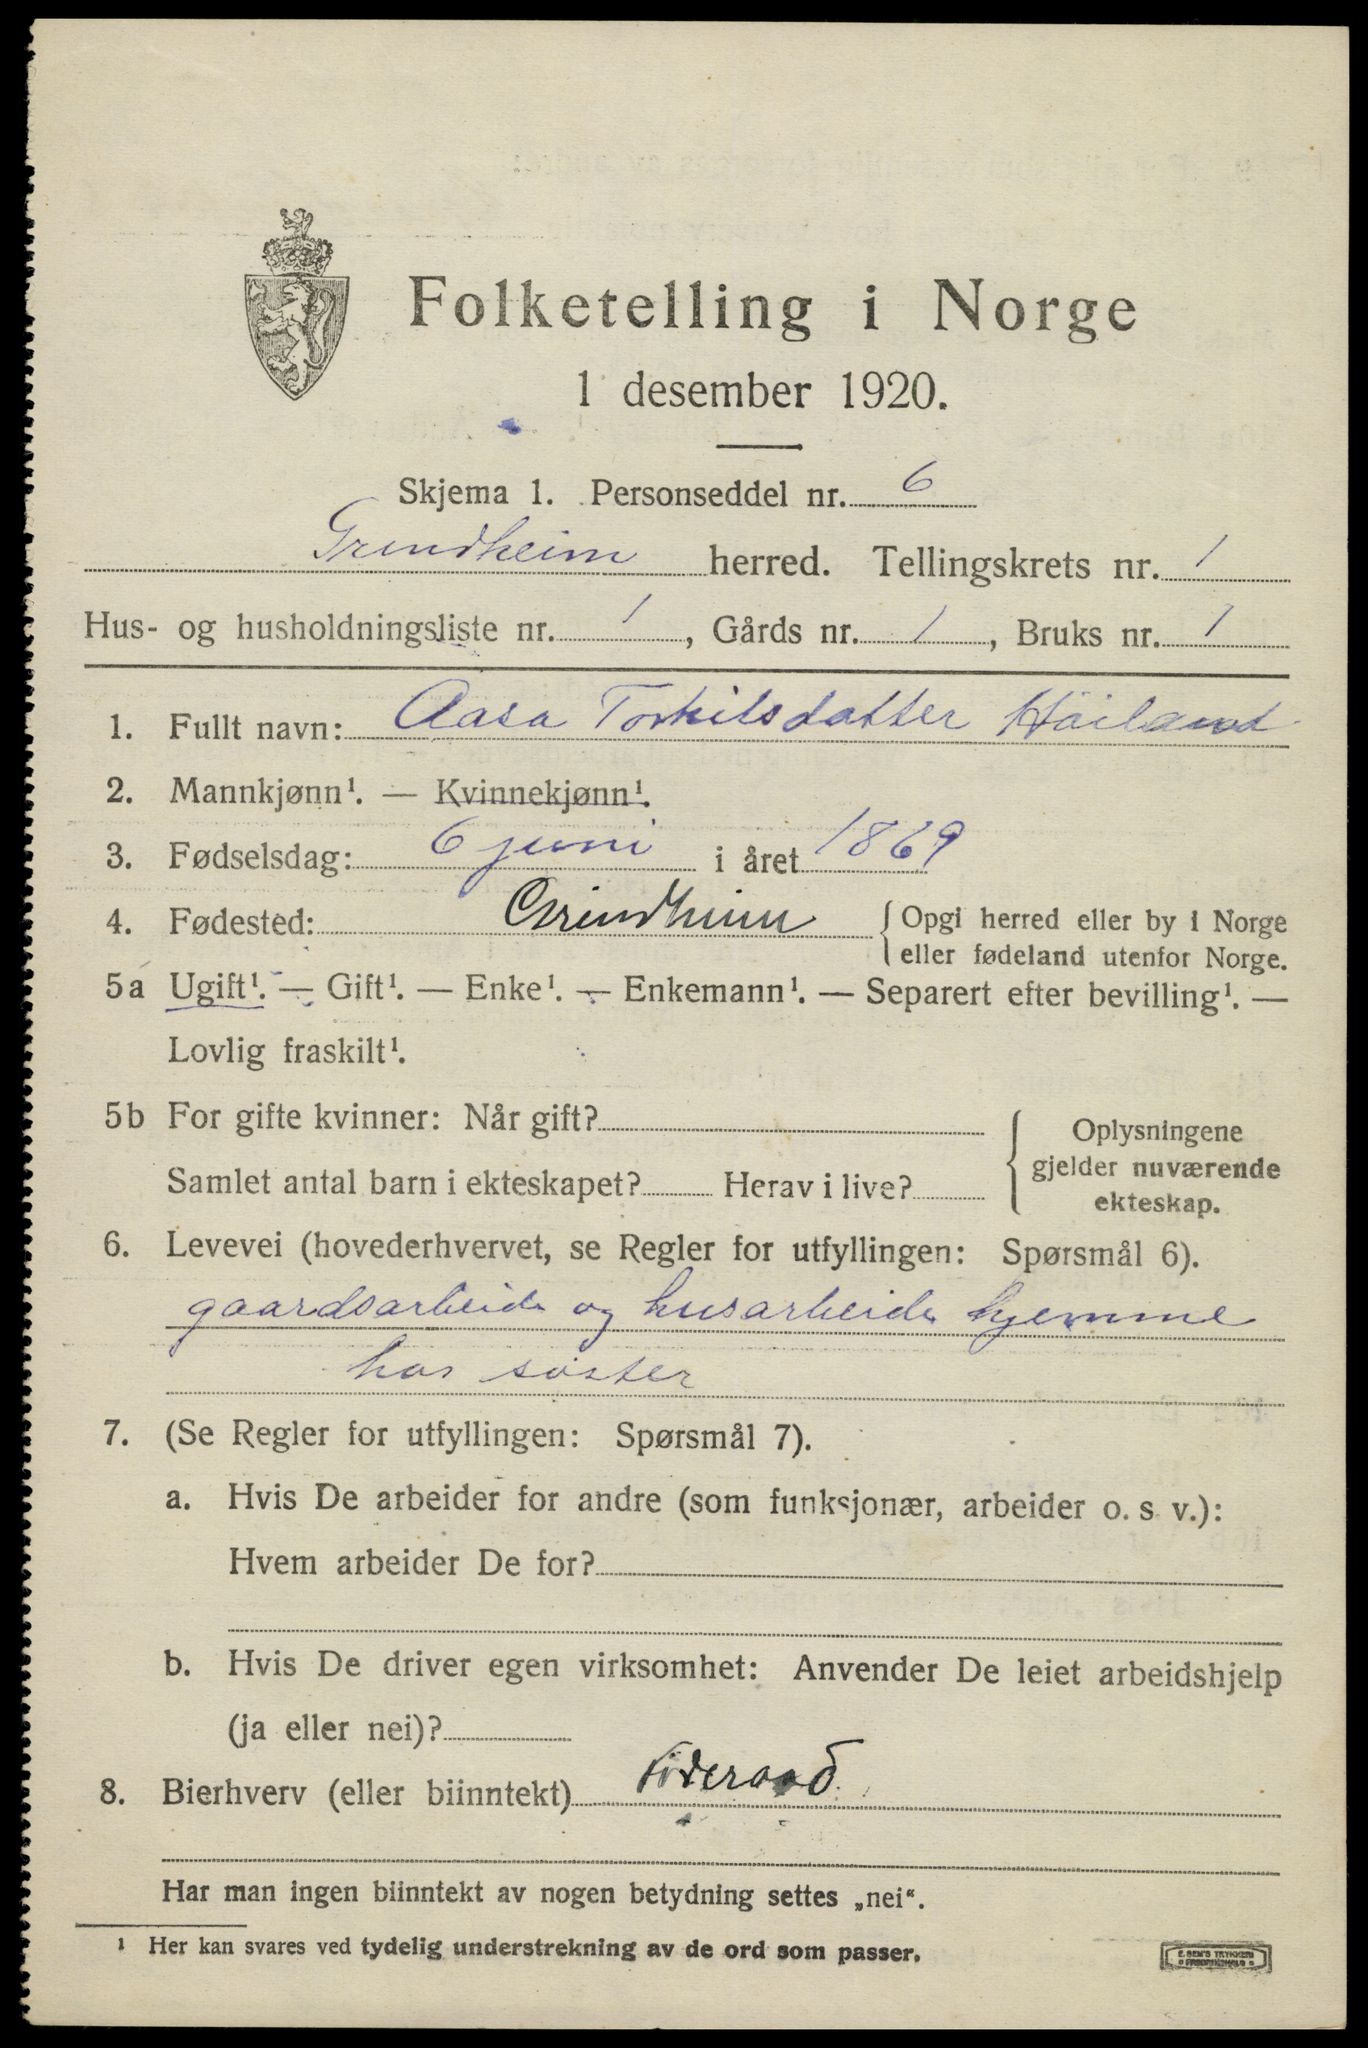 Folketelling i Norge
1 desember 1920.
Skjema 1. Personseddel nr. 6
Grindheim herred. Tellingskrets nr. 1
Hus- og husholdningsliste nr. 1, Gårds nr. 1, Bruks nr. 1
1. Fullt navn: Aasa Torkilsdatter Höiland
2. Mannkjønn¹. — Kvinnekjønn¹.
3. Fødselsdag: 6 juni i året 1869
4. Fødested: Grindheim { Opgi herred eller by i Norge
eller fødeland utenfor Norge.
5a Ugift¹. — Gift¹. — Enke¹. — Enkemann¹. — Separert efter bevilling¹. —
Lovlig fraskilt¹.
5b For gifte kvinner: Når gift?
Samlet antal barn i ekteskapet? Herav i live?
{ Oplysningene
gjelder nuværende
ekteskap.
6. Levevei (hovederhvervet, se Regler for utfyllingen: Spørsmål 6).
gaardsarbeide og husarbeide hjemme
hos søster
7. (Se Regler for utfyllingen: Spørsmål 7).
a. Hvis De arbeider for andre (som funksjonær, arbeider o. s. v.):
Hvem arbeider De for?
b. Hvis De driver egen virksomhet: Anvender De leiet arbeidshjelp
(ja eller nei)?
8. Bierhverv (eller biinntekt) Föderaad.
Har man ingen biinntekt av nogen betydning settes „nei“.
¹ Her kan svares ved tydelig understrekning av de ord som passer.
E. SEM'S TRYKKERI
FREDRIKSHALD